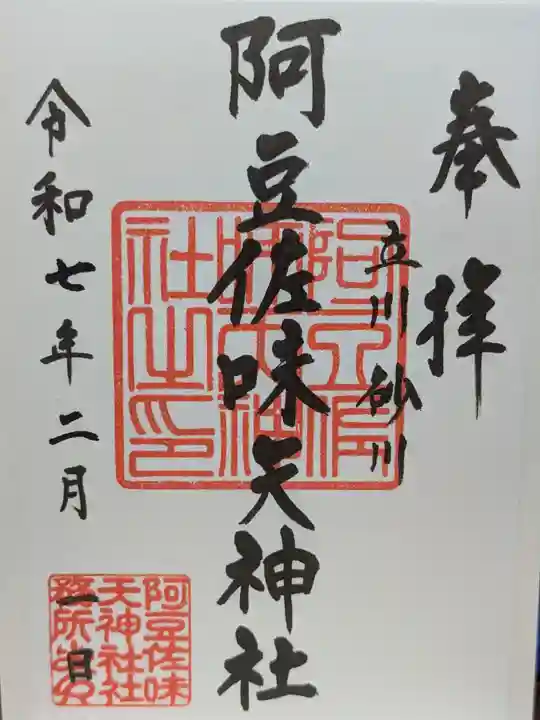 奉拝
立川砂川
阿豆佐味天神社
阿豆佐味天神社之印
令和七年二月
一日
阿豆佐味
天神社社
務所之印